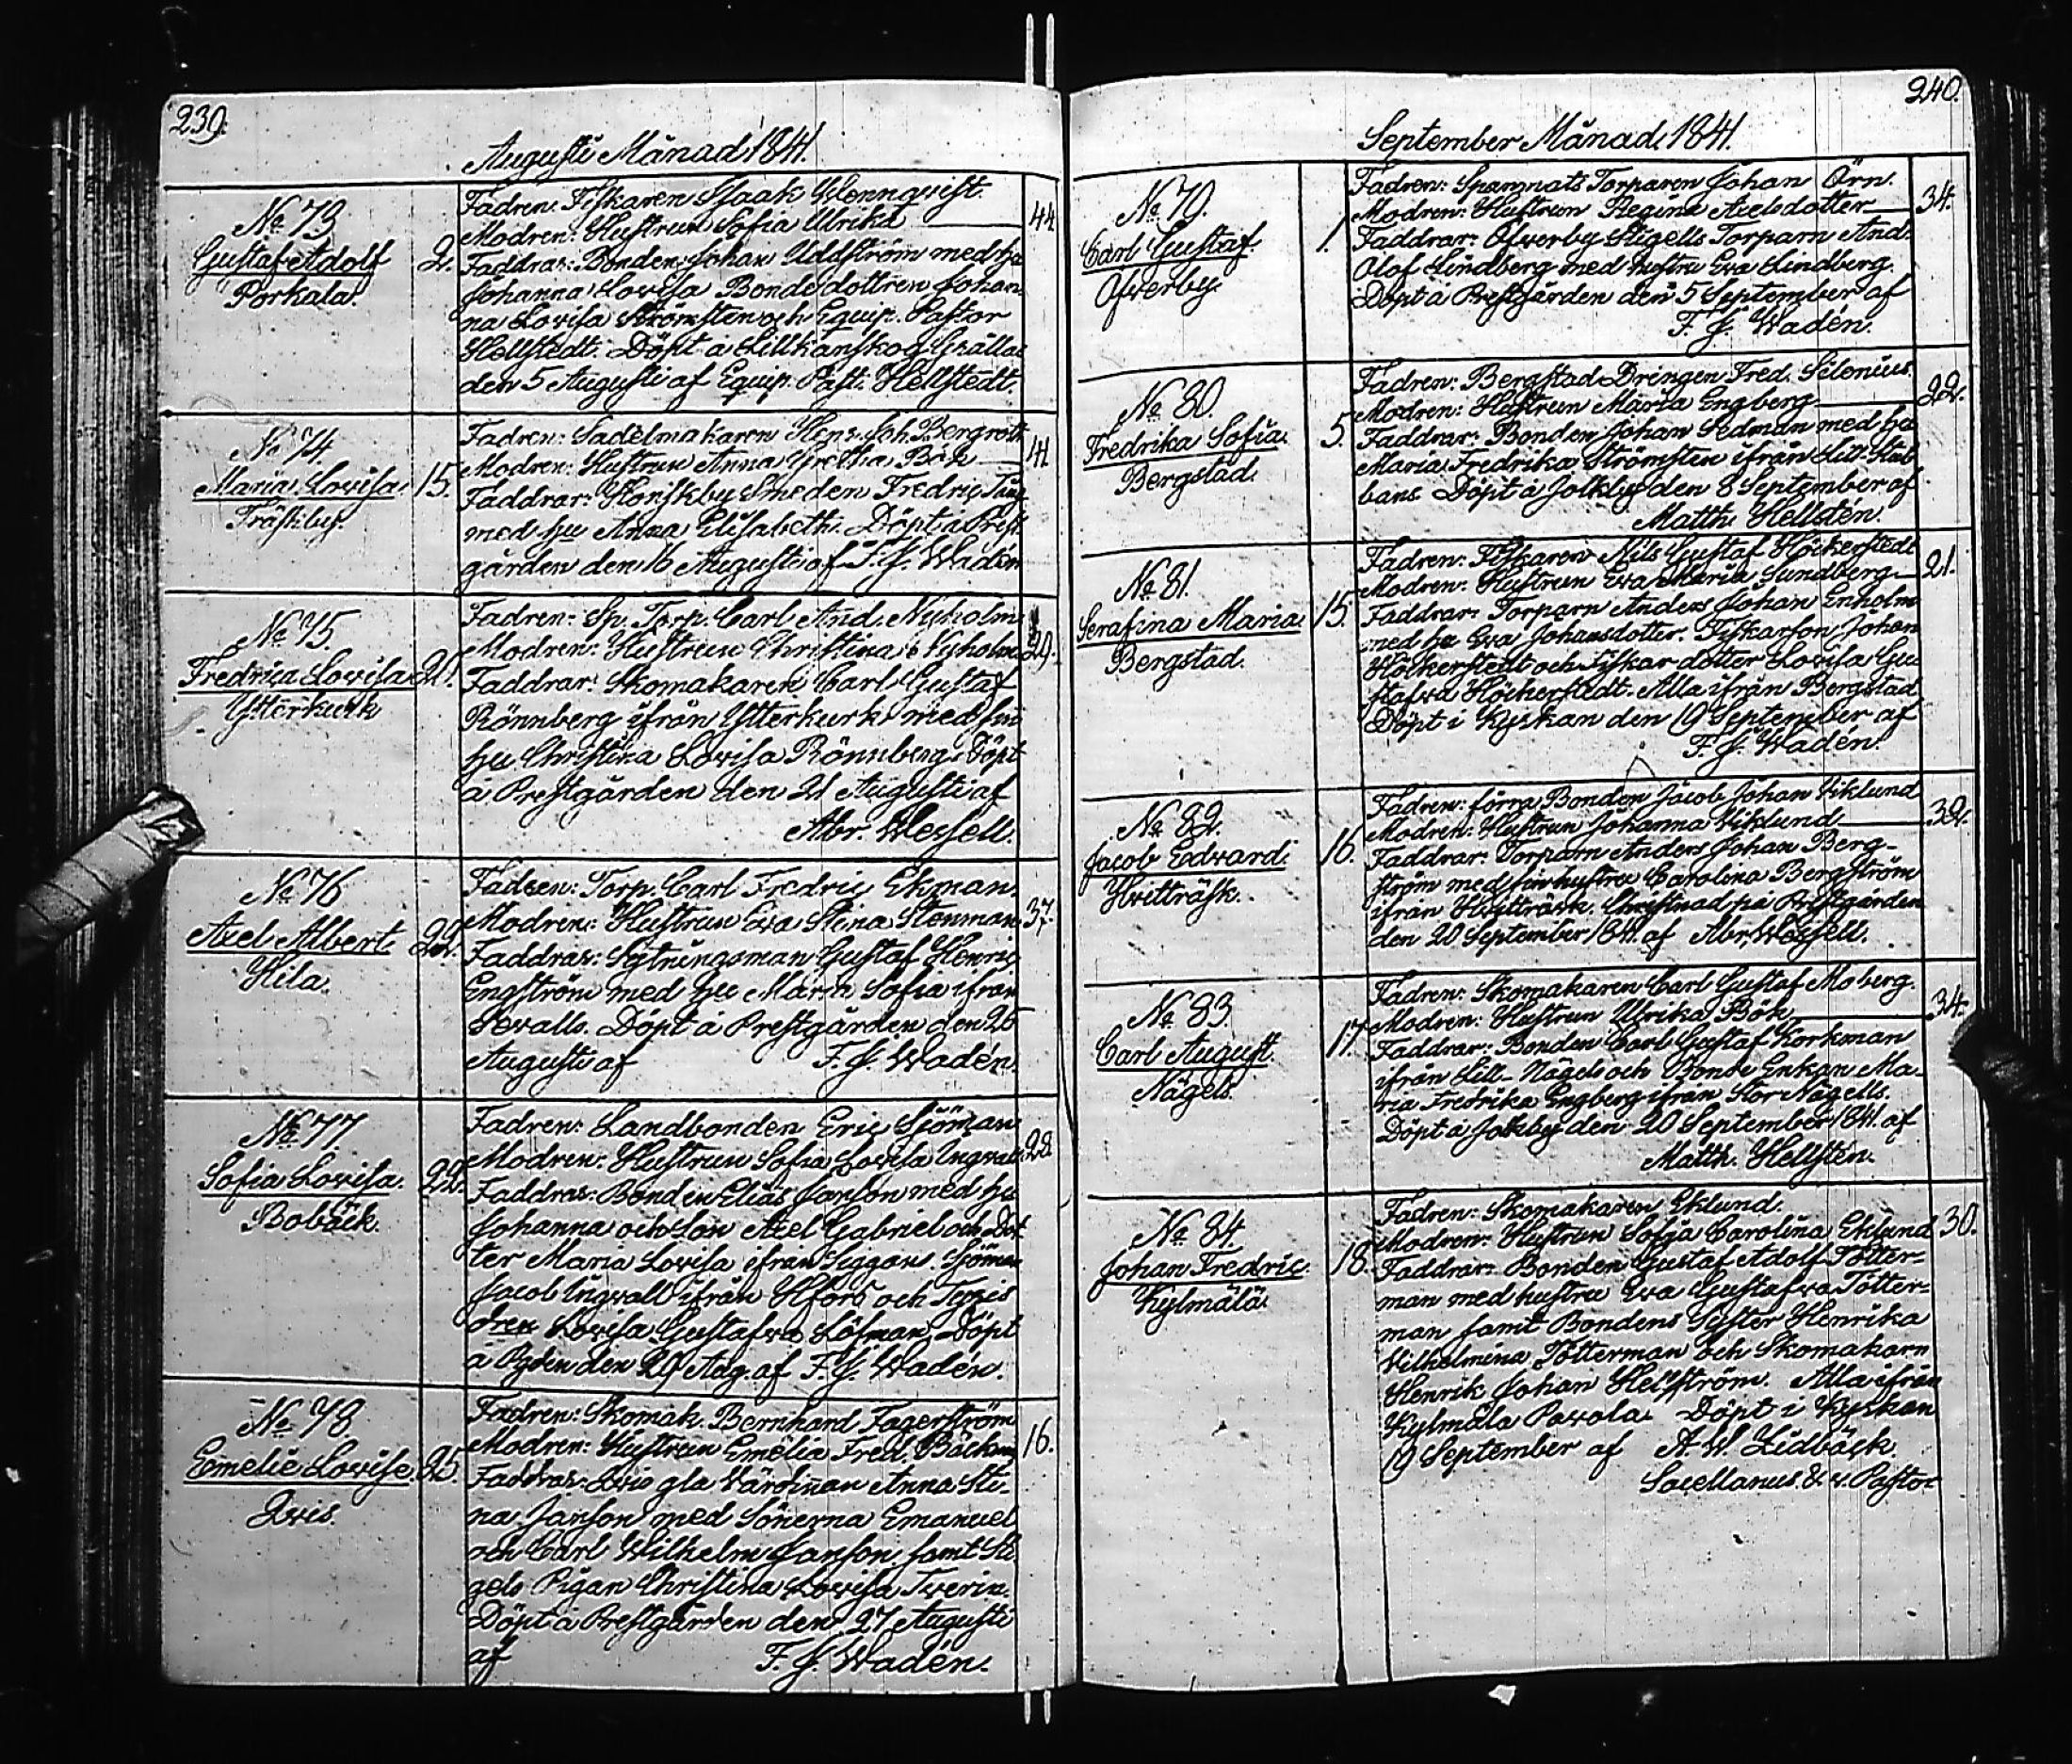 239.
Augusti Månad 1841.
No 73
Gustaf Adolf
Porkala.
2.
Fadren. Fiskaren Isaak Wennqvist.
Modren: Hustrun Sofia Ulrika
44
Faddrar: Bonden Johan Uddström med hu
Johanna Lovisa Bondedottren Johan-
na Lovisa Strömsten och Equip. Pastor
Hellstedt. Döpt å Lillkanskog Grälla
den 5 Augusti af Equip. Past. Hellstedt.
No 74.
Maria Lovisa.
Träskby.
15.
Fadren: Sadelmakaren Henr. Joh. Bergroth
Modren: Hustrun Anna Gretha Bök
41
Faddrar: Horskby Smeden Fredric
med hu Anna Elisabeth. Döpt å Prest-
gården den 16 Augusti af F. J. Wadén
No 75.
Fredrica Lovisa
Ytterkurk
21.
Fadren: Sp. Torp. Carl And. Nyholm
Modren: Hustrun Christina Nyholm
29.
Faddrar: Skomakaren Carl Gustaf
Rönnberg ifrån Ytterkurk med sin
hu Christina Lovisa Rönnberg. Döpt
å Prestgården den 21 Augusti af
Abr. Wessell.
No 76
Axel Albert.
Hila.
22.
Fadren: Torp. Carl Fredric Ekman.
Modren: Hustrun Eva Stina Stenman
37.
Faddrar: Sytningsman Gustaf Henric
Engström med hu Maria Sofia ifrån
Sevalls. Döpt å Prestgården den 25
Augusti af F. J. Wadén.
No 77.
Sofia Lovisa.
Bobäck.
22.
Fadren: Landbonden Eric Sjöman
Modren: Hustrun Sofia Lovisa Ingvall
28.
Faddrar: Bonden Elias Janson med hu
Johanna och Son Axel Gabriel och Dot-
ter Maria Lovisa ifrån Seggars Sjöman
Jacob Ingvall ifrån Hfors och
Lovisa Gustafva Löfman, Döpt
å den 29 Aug. af F. J. Wadén.
No 78.
Emelie Lovise.
Qvis.
25.
Fadren: Skomak. Bernhard Fagerström
Modren: Hustrun Emelia Fred. Bäckm
16.
Faddrar: Qvis gla Värdinan Anna Sti-
na Janson med Sönerna Emanuel
och Carl Wilhelm Janson, samt Sti
gels Pigan Christina Lovisa Tverin.
Döpt å Prestgården den 27 Augusti
af F. J. Wadén.
240.
September Månad 1841.
No 79.
Carl Gustaf.
Ofverby.
1.
Fadren: Spannals Torparen Johan Örn.
Modren: Hustrun Regina Axelsdotter
34.
Faddrar: Ofverby Stigells Torparn And.
Olof Lindberg med hustru Eva Lindberg.
Döpt å Prestgården den 5 September af
F. J. Wadén.
No 80.
Fredrika Sofia.
Bergstad.
5.
Fadren: Bergstad Drängen Fred. Silenius.
Modren: Hustrun Maria Engberg
22.
Faddrar: Bonden Johan Sedman med hu
Maria Fredrika Strömsten ifrån Lill Kub
bans Döpt å Jolkby den 8 September af
Matth. Hellstén.
No 81.
Serafina Maria.
Bergstad.
15.
Fadren: Fiskaren Nils Gustaf Höckerstedt
Modren: Hustrun Eva Maria Sundberg
21.
Faddrar: Torparn Anders Johan Enholm
med hu Eva Johansdotter. Fiskarson Johan
Höckerstedt och Fiskar dotter Lovisa Gu-
stafva Höckerstedt. Alla ifrån Bergstad
Döpt i Kyrkan den 19 September af
F. J. Wadén.
No 82.
Jacob Edvard.
Hvitträsk.
16.
Fadren: förra Bonden Jacob Johan Viklund
Modren: Hustrun Johanna Viklund
32.
Faddrar: Torparn Anders Johan Berg-
ström med sin hustru Carolina Bergström
ifrån Hvitträsk. Christnad på Prestgården
den 20 September 1841. af Abr. Wessell.
No 83.
Carl August.
Nägels.
17.
Fadren: Skomakaren Carl Gustaf Moberg.
Modren: Hustrun Ulrika Bök
34.
Faddrar: Bonden Carl Gustaf Korkman
ifrån Lill-Nägels och Bonde Enkan Ma-
ria Fredrika Engberg ifrån Stor Nägells.
Döpt å Jolkby den 20 September 1841. af
Matth. Hellstén.
No 84.
Johan Fredric.
Kylmälä.
18.
Fadren: Skomakaren Eklund.
Modren: Hustrun Sofia Carolina Eklund
30.
Faddrar: Bonden Gustaf Adolf Tötter-
man med hustru Eva Gustafva Tötter-
man samt Bondens Syster Henrika
Vilhelmina Tötterman och Skomakarn
Henrik Johan Hellström. Alla ifrån
Kylmäla Pavola. Döpt i Kyrkan
19 September af A. W. Lidbäck.
Sacellanus & v. Pastor